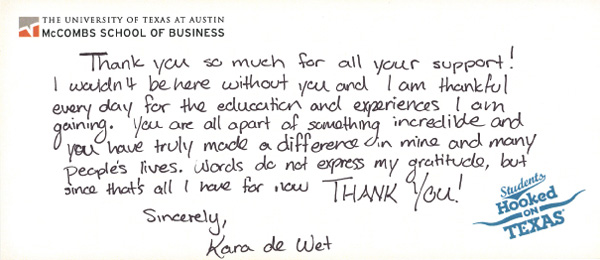 THE UNIVERSITY OF TEXAS AT AUSTIN
McCOMBS SCHOOL OF BUSINESS
Thank you so much for all your support!
I wouldn't be here without you and I am thankful
every day for the education and experiences I am
gaining. You are all apart of something incredible and
you have truly made a difference in mine and many
people's lives. Words do not express my gratitude, but
since that's all I have for now THANK YOU!
Sincerely,
Kara de Wet
Students
Hooked
ON
TEXAS